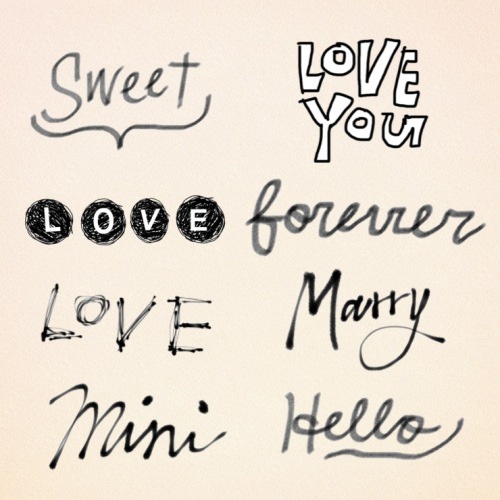 Sweet
LOVE
You
LOVE
forever
LOVE
Marry
Mini
Hello